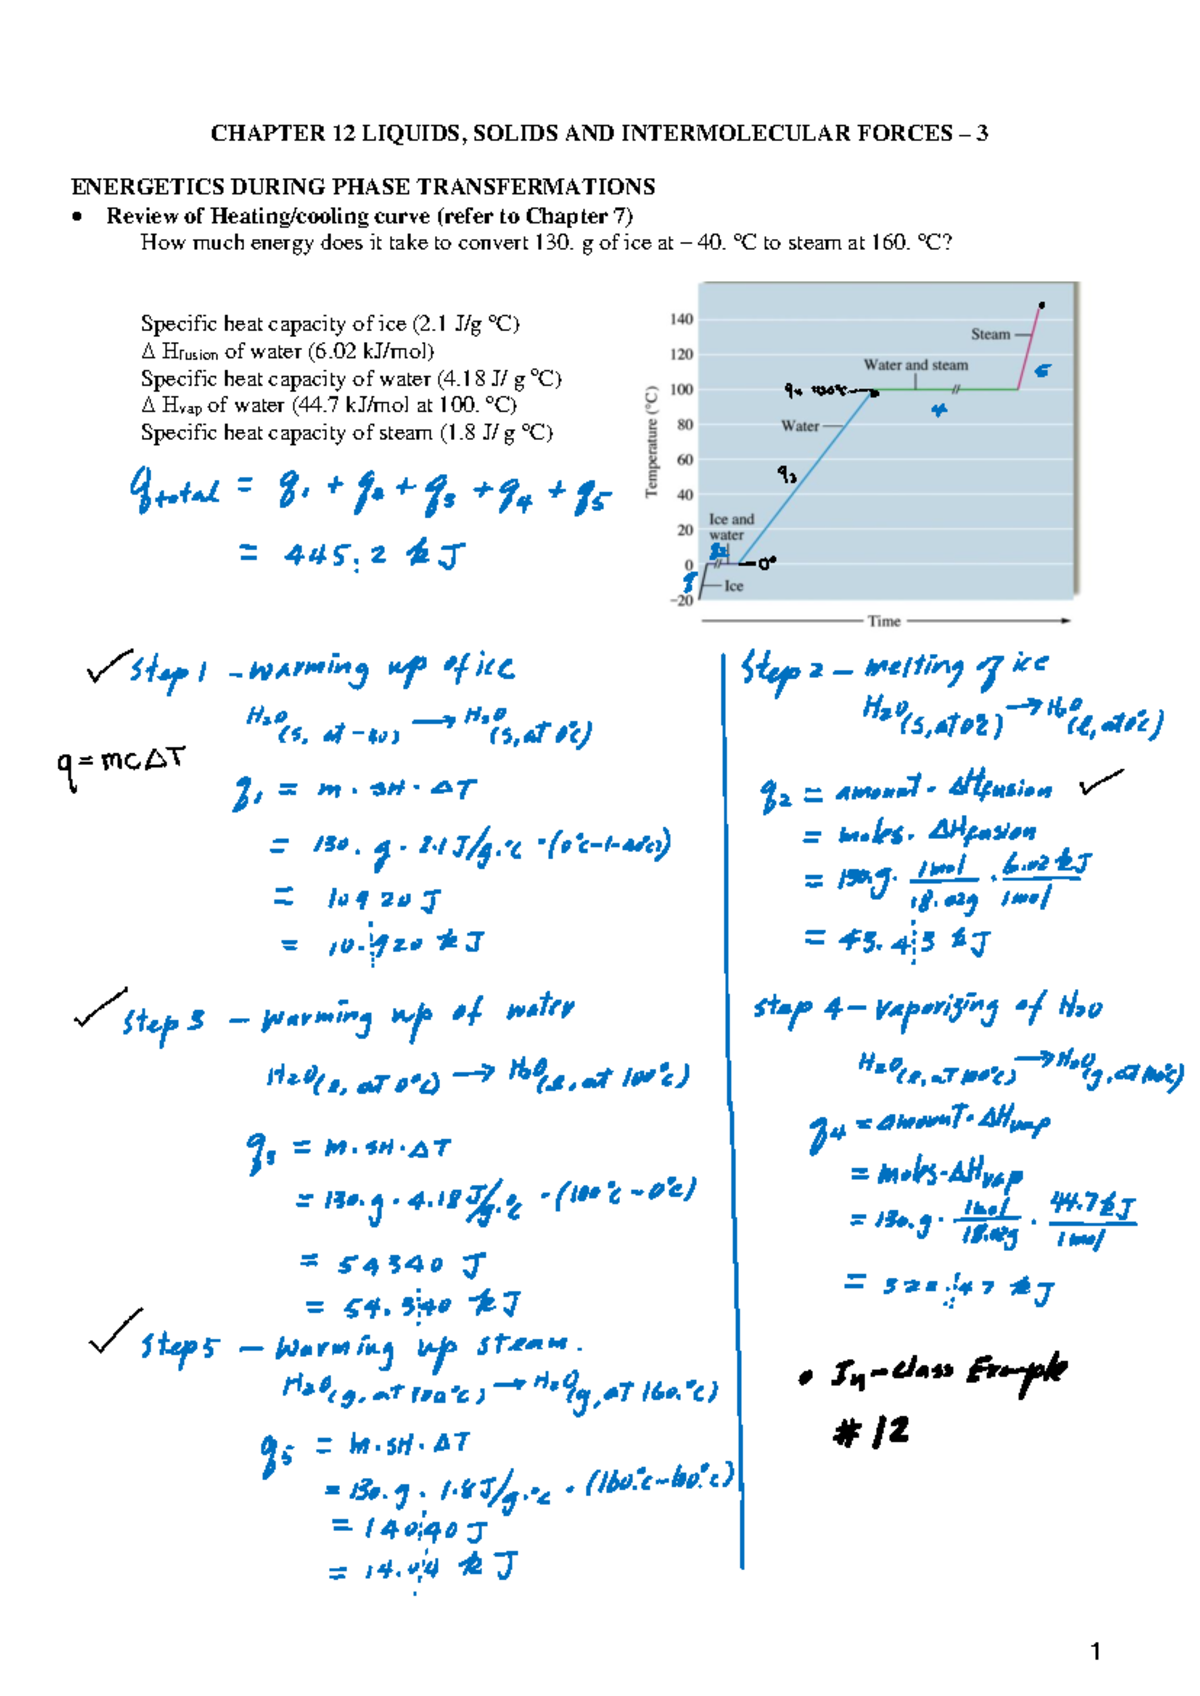 CHAPTER 12 LIQUIDS, SOLIDS AND INTERMOLECULAR FORCES – 3
ENERGETICS DURING PHASE TRANSFERMATIONS
• Review of Heating/cooling curve (refer to Chapter 7)
How much energy does it take to convert 130. g of ice at – 40. °C to steam at 160. °C?
Specific heat capacity of ice (2.1 J/g °C)
Δ Hfusion of water (6.02 kJ/mol)
Specific heat capacity of water (4.18 J/ g °C)
Δ Hvap of water (44.7 kJ/mol at 100. °C)
Specific heat capacity of steam (1.8 J/ g °C)
q total = q1 + q2 + q3 + q4 + q5
= 445.2 kJ
Temperature (°C)
140
120
100
80
60
40
20
0
−20
Steam
5
Water and steam
4
q4 100°C
Water
q3
Ice and
water
q2
0°
q
Ice
Time
✓ Step 1 – warming up of ice
H2O (s, at -40) → H2O (s, at 0°C)
q = mcΔT
q1 = m · SH · ΔT
= 130. g · 2.1 J/g.°C · (0°C-(-40°C))
= 10920 J
= 10.920 kJ
Step 2 – melting of ice
H2O (s, at 0°C) → H2O (l, at 0°C)
q2 = amount · ΔHfusion ✓
= moles · ΔHfusion
= 130.g · 1mol/18.02g · 6.02 kJ/1mol
= 43.43 kJ
✓ Step 3 – warming up of water
H2O (l, at 0°C) → H2O (l, at 100°C)
q3 = m · SH · ΔT
= 130. g · 4.18 J/g.°C · (100°C – 0°C)
= 54340 J
= 54.340 kJ
Step 4 – vaporizing of H2O
H2O (l, at 100°C) → H2O (g, at 100°C)
q4 = amount · ΔHvap
= moles · ΔHvap
= 130. g · 1mol/18.02g · 44.7 kJ/1mol
= 322.47 kJ
✓ Step 5 – Warming up steam.
H2O (g, at 100°C) → H2O (g, at 160.°C)
q5 = m · SH · ΔT
= 130. g · 1.8 J/g.°C · (160.°C – 100.°C)
= 14040 J
= 14.04 kJ
• In-class Example
# 12
1